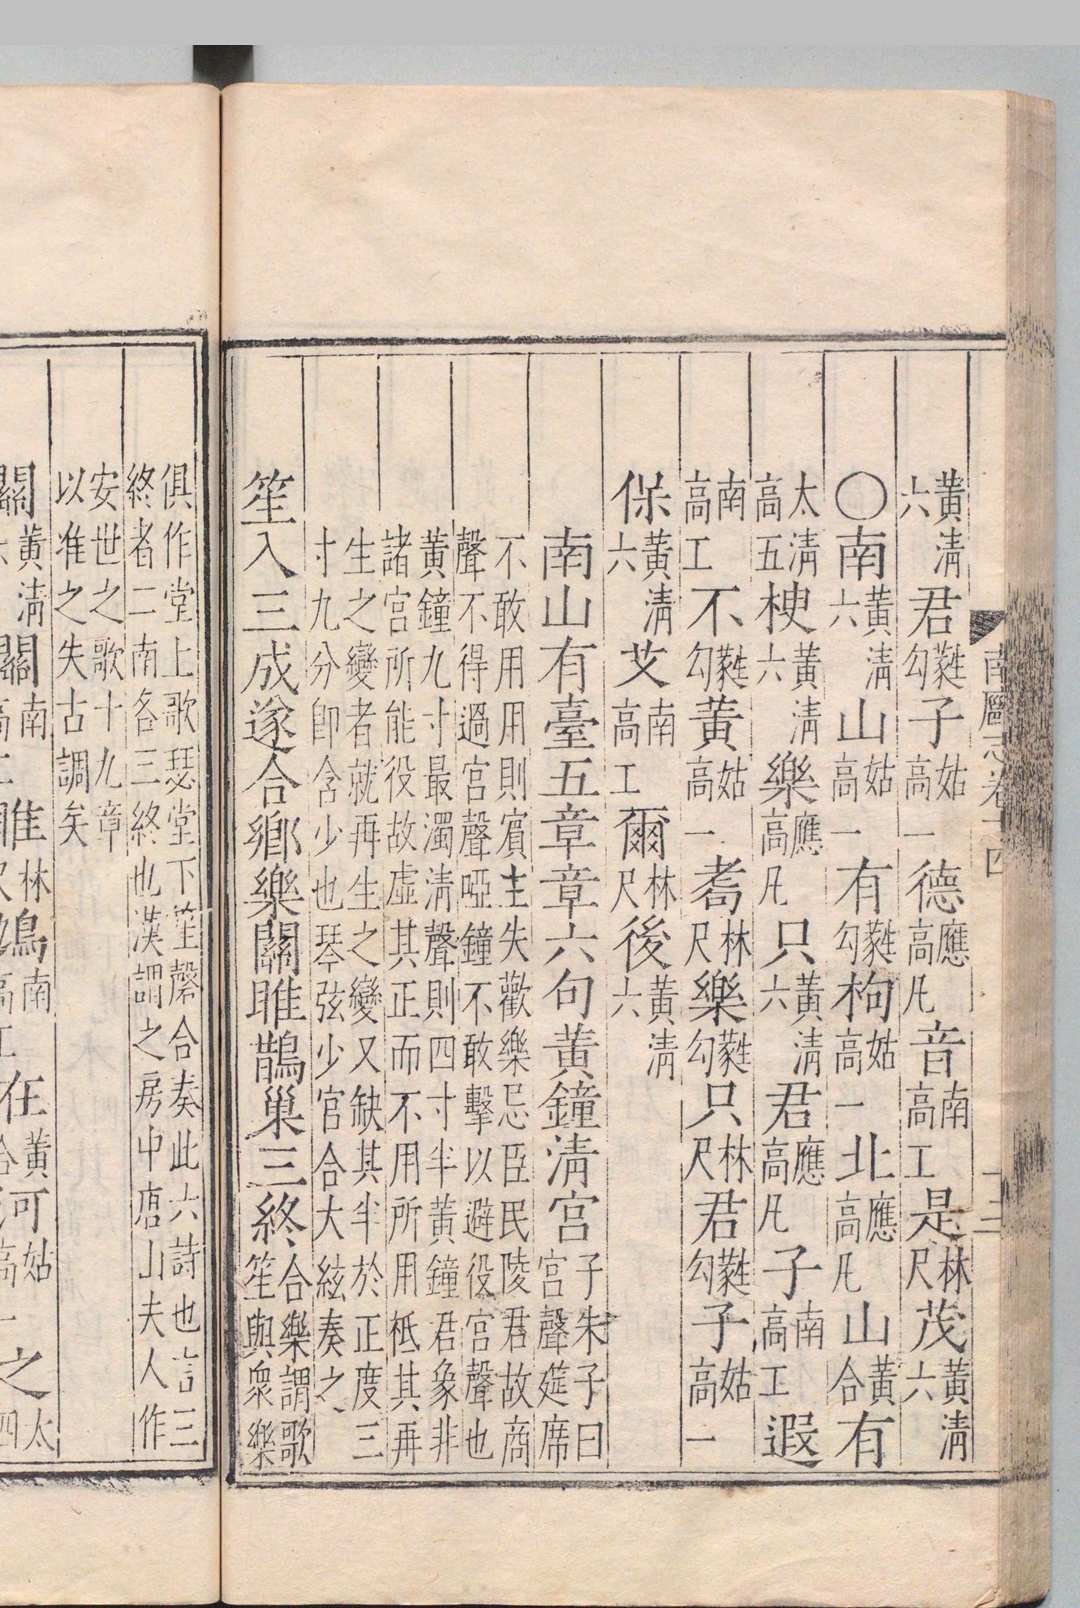 南廱志卷十四
黃清六君蕤勾子姑高一德應高凡音南高工是林尺茂黃清六
○南黃清六山姑高一有蕤勾枸姑高一北應高凡山黃合有
太清高五楰黃清六樂應高凡只黃清六君應高凡子南高工遐
南高工不蕤勾黃姑高一耇林尺樂蕤勾只林尺君蕤勾子姑高一
保黃清六艾南高工爾林尺後黃清六
南山有臺五章章六句黃鐘清宮子朱子曰
宮聲筵席
不敢用用則賓主失歡樂忌臣民陵君故商
聲不得過宮聲啞鐘不敢擊以避役宮聲也
黃鐘九寸最濁清聲則四寸半黃鐘君象非
諸宮所能役故虛其正而不用所用秪其再
生之變者就再生之變又缺其半於正度三
寸九分卽含少也琴弦少宮合大絃奏之
笙入三成遂合鄉樂關雎鵲巢三終合樂謂歌
笙與衆樂
俱作堂上歌瑟堂下笙磬合奏此六詩也言三
終者二南各三終也漢謂之房中唐山夫人作
安世之歌十九章
以准之失古調矣
關黃清六關南高工雎林尺鳩南高工在黃合河姑高一之太四